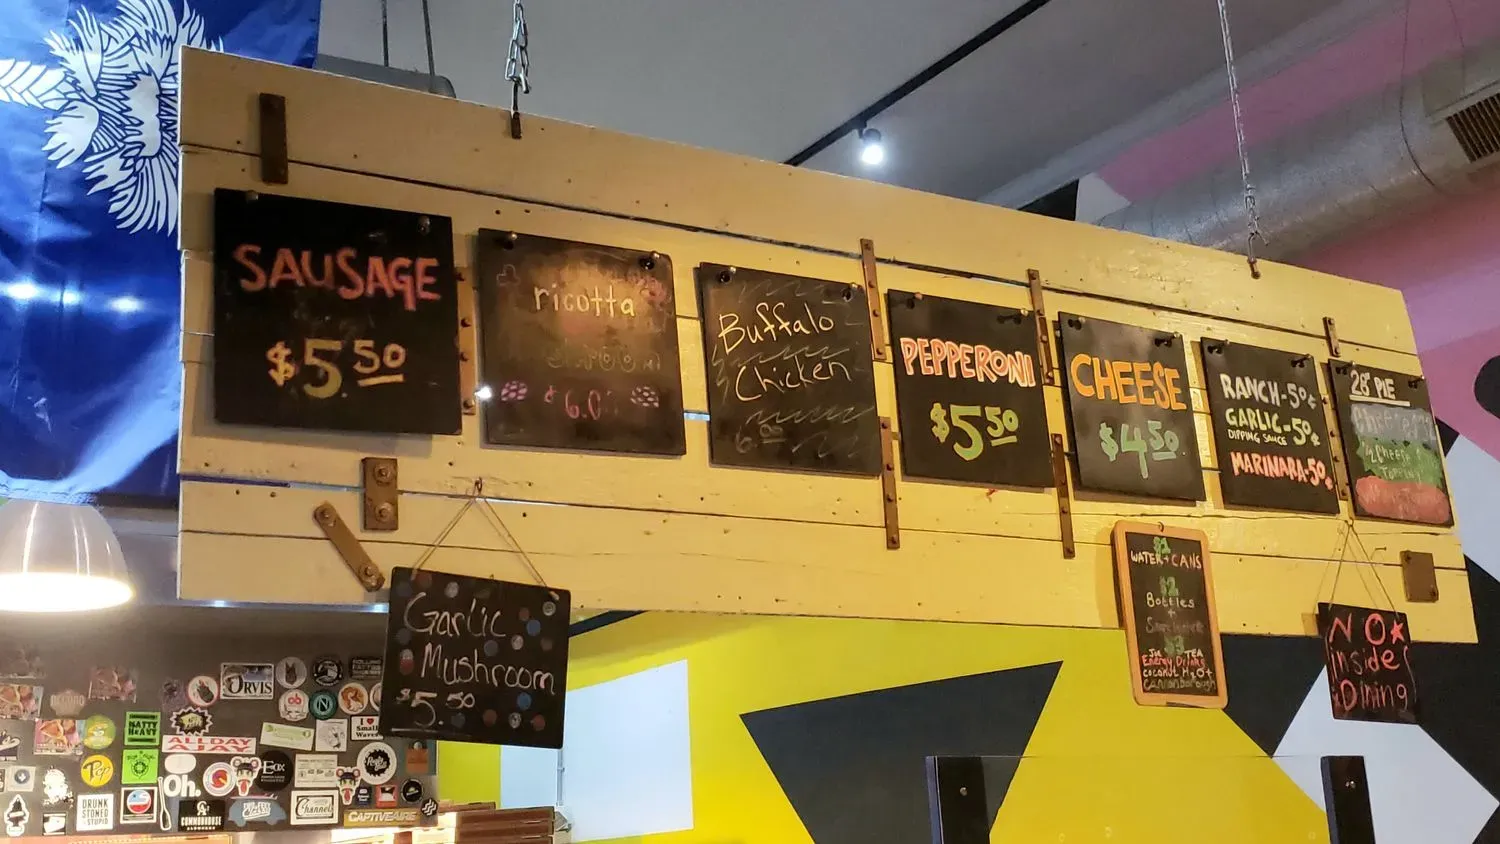 SAUSAGE
$5.50
ricotta
$6.0
Buffalo
Chicken
6.00
PEPPERONI
$5.50
CHEESE
$4.50
RANCH-50¢
GARLIC-50¢
DIPPING SAUCE
MARINARA-50¢
28" PIE
Cheese
Garlic
Mushroom
$5.50
$1
WATER + CANS
$2
Bottles
+
$3
TEA
Energy Drinks
coconut H2O+
Cannonborough
NO
inside
Dining
ORVIS
NATTY
HEAVY
ALLDAY
AJAY
I ♥
Small
Waves
Pop
Oh.
DRUNK
STONED
STUPID
COMMONHOUSE
ALEWORKS
Channel
CAPTIVEAIRE